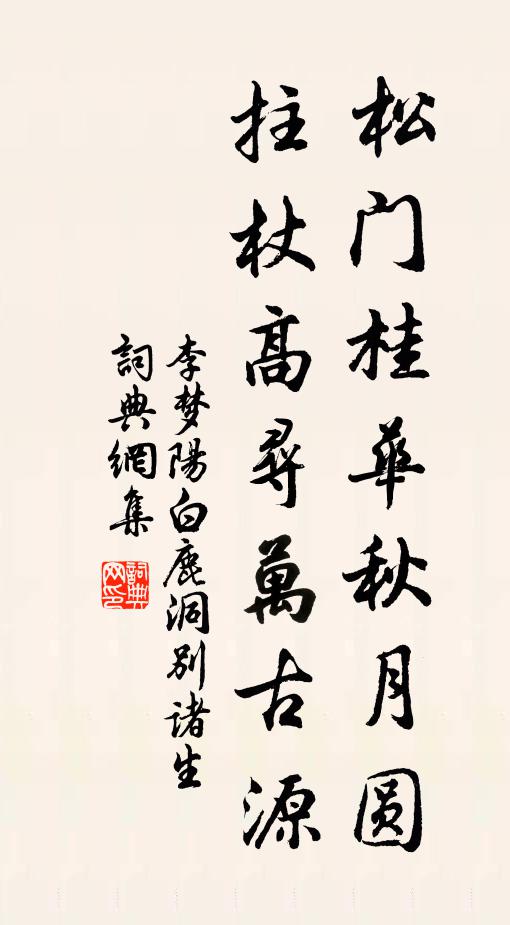 松门桂华秋月圆
拄杖高寻萬古源
李梦陽白鹿洞别诸生
詞典網集
詞典网印